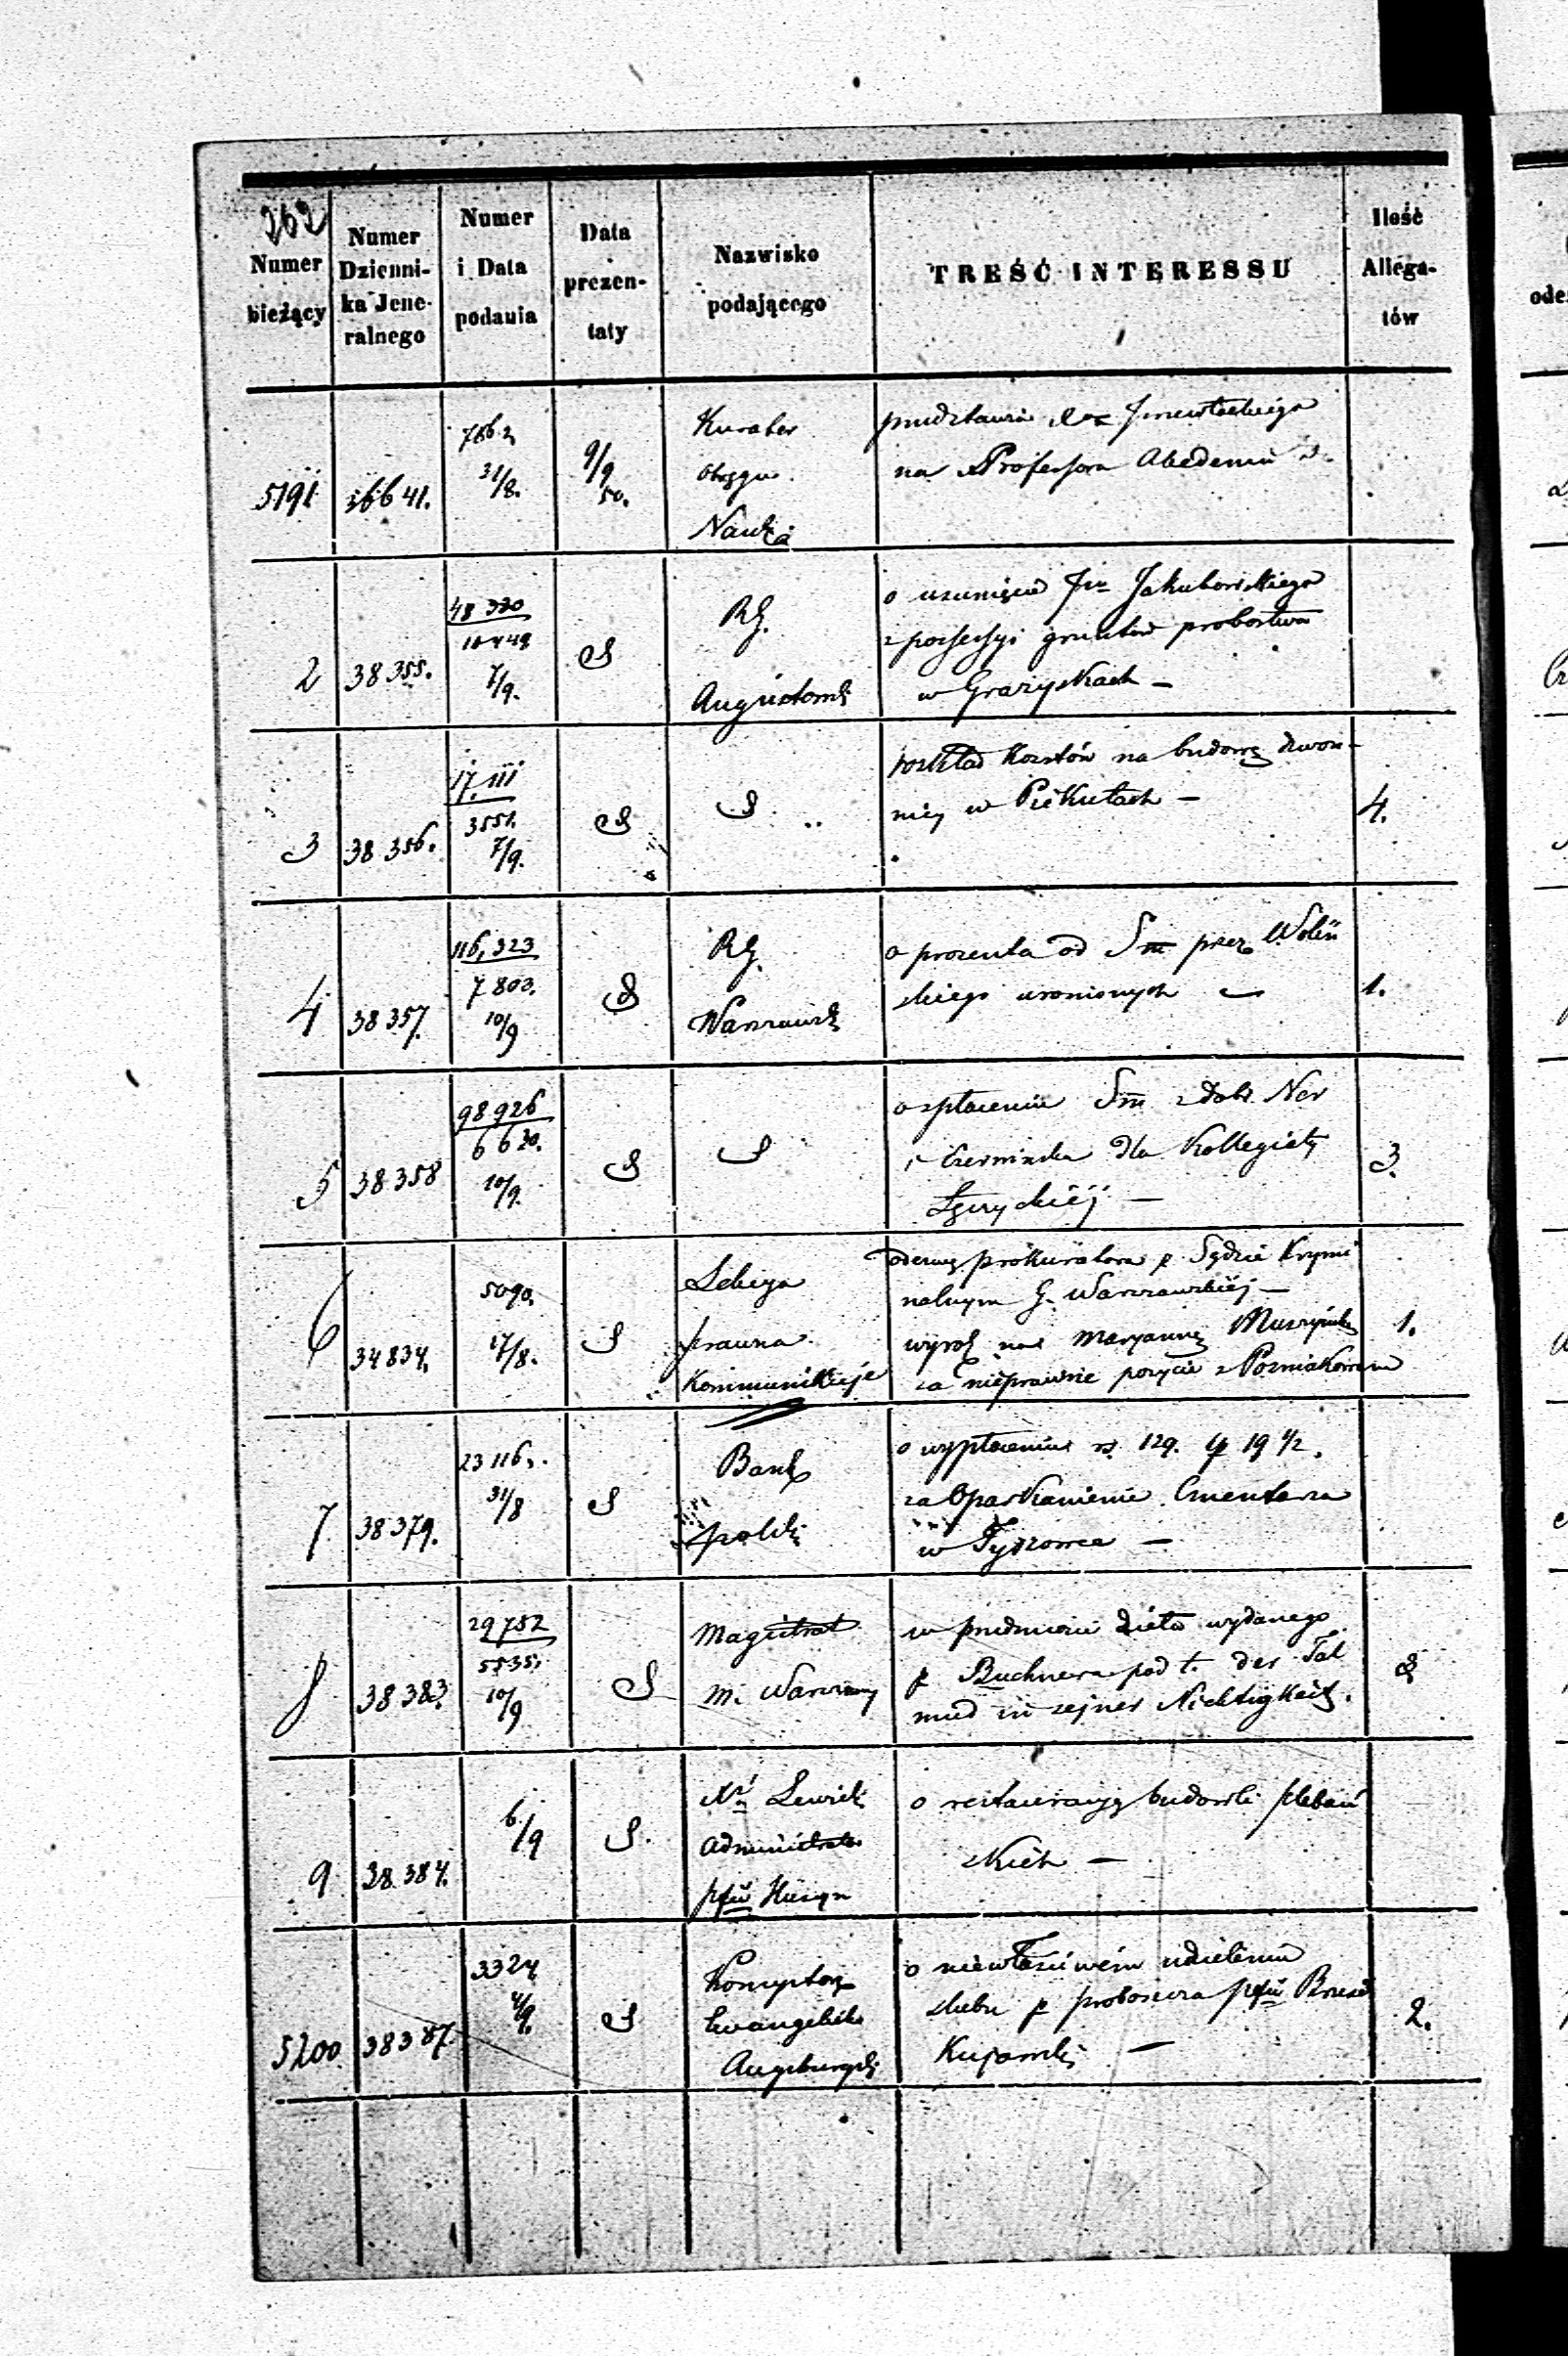 262
Numer bieżący
Numer Dzienni-ka Jene-ralnego
Numer i Data podania
Data prezen-taty
Nazwisko podającego
TREŚĆ INTERESSU
Ilość Allega-tów
5191 36641. 31/8. 9/9 50.
Kurator
Okręgu
Nauk:
na Professora Akademii D.
2 38355. 48330 10449 7/9. S
RG.
Augustows
o usunięcie Jakubowskiego
z possessyi gruntów probostwa
w Grażyskach —
3 38356. 17.111 3551. 7/9. S S
rozkład kosztów na budowę dzwon-
nicy w Piekutach — 4.
4 38357. 116,323 7803. 10/9 S
RG.
Warszawsk
o procenta od Sm przez Woliń
skiego uronionych — 1.
5 38358 98926 6630. 10/9. S S
o spłacenie Sm z dóbr Ner
dla Kollegiaty
Łęczyckiéj — 3.
6 34834. 5090. 17/8. S
Sekcya
prawna
Kommunikuje
odezwę prokuratora p. Sądzie Krymi
nalnym G. Warszawskiéj —
wyrok na Maryannę Muszyńską
za nieprawne pożycie z Pozniakowem 1.
7 38379. 23116. 31/8 S
Bank
polski
o wypłacenie rs. 129. k 19 1/2.
za Oparkanienie Cmentarza
w Tyszowce —
8 38383. 29752 5535. 10/9 S
Magistrat
m. Warszawy
w przedmiocie dzieła wydanego
p. Buchnera pod t. der Tal
mud in seiner Nichtigkeit.
9 38384. 6/9 S.
Xs Lewicki
Administrator
pfii Huszyn
o restauracyę budowli plebań
skich —
5200 38387 3324 4/9. S
Konsystorz
Ewangelicko
Augsburgski
o niewłaściwém udzieleniu
ślubu p proboszcza pfii Brześć
Kujawski — 2.